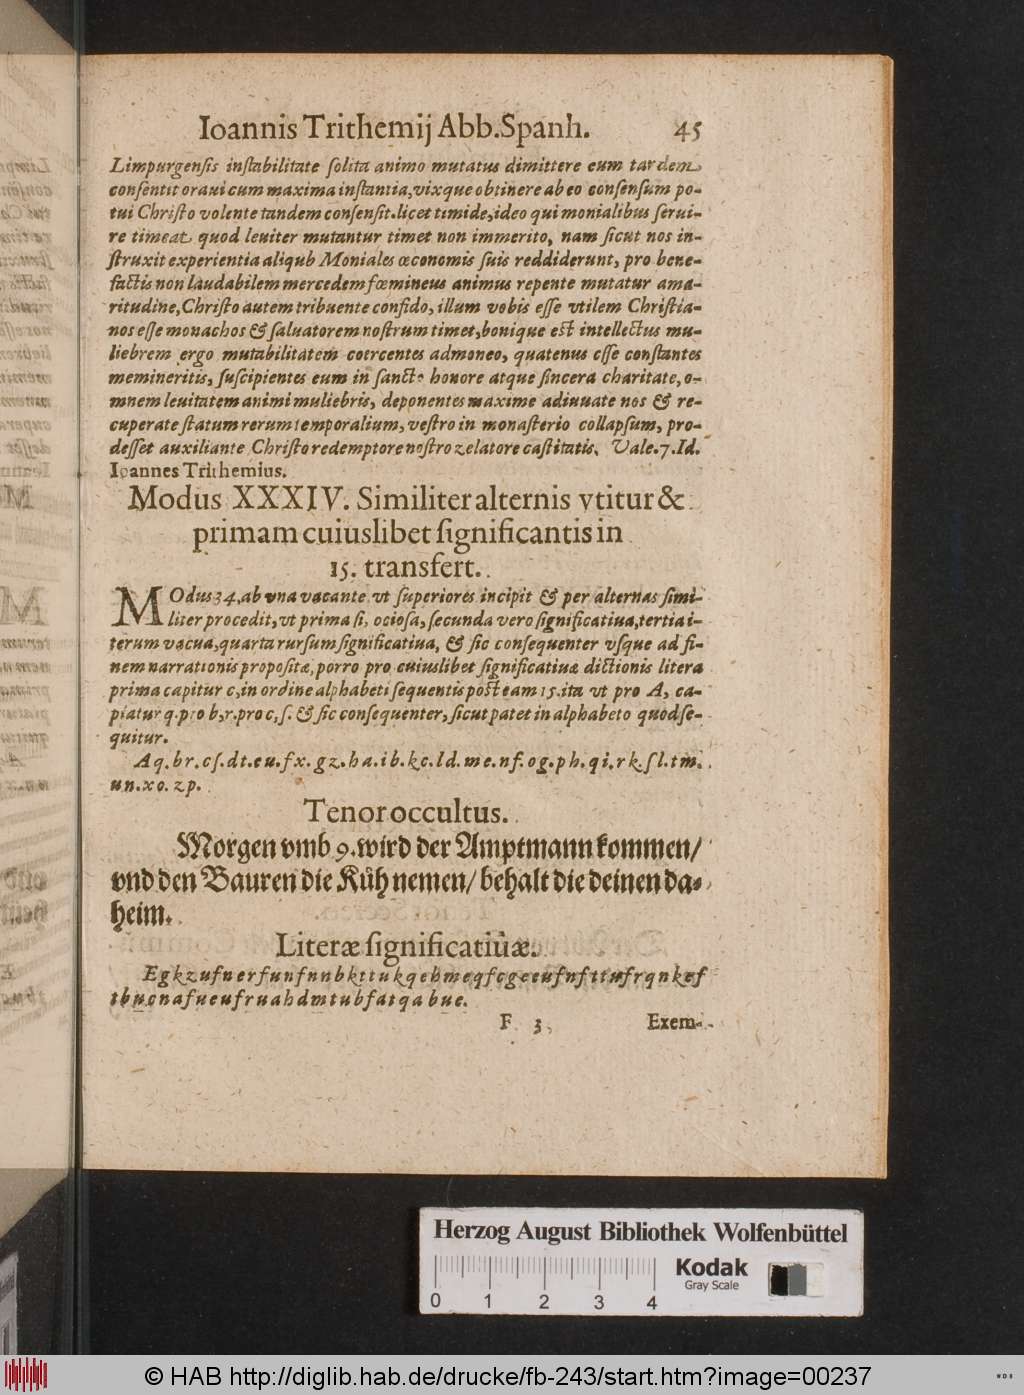 Ioannis Trithemij Abb. Spanh. 45
Limpurgensis instabilitate solita animo mutatus dimittere eum tardem
consentit oraui cum maxima instantia, vixque obtinere ab eo consensum po-
tui Christo volente tandem consensit. licet timide, ideo qui monialibus serui-
re timeat quod leuiter mutantur timet non immerito, nam sicut nos in-
struxit experientia aliqub Moniales œconomis suis reddiderunt, pro bene-
factis non laudabilem mercedem fœmineus animus repente mutatur ama-
ritudine, Christo autem tribuente confido, illum vobis esse vtilem Christia-
nos esse monachos & saluatorem nostrum timet, bonique est intellectus mu-
liebrem ergo mutabilitatem coercentes admoneo, quatenus esse constantes
memineritis, suscipientes eum in sancto honore atque sincera charitate, o-
mnem leuitatem animi muliebris, deponentes maxime adiuuate nos & re-
cuperate statum rerum temporalium, vestro in monasterio collapsum, pro-
desset auxiliante Christo redemptore nostro zelatore castitatis. Vale. 7. Id.
Ioannes Trithemius.
Modus XXXIV. Similiter alternis vtitur &
primam cuiuslibet significantis in
15. transfert.
MOdus 34, ab vna vacante vt superiores incipit & per alternas simi-
liter procedit, vt prima si, ociosa, secunda vero significatiua, tertia i-
terum vacua, quarta rursum significatiua, & sic consequenter vsque ad fi-
nem narrationis propositæ, porro pro cuiuslibet significatiuæ dictionis litera
prima capitur c, in ordine alphabeti sequentis post eam 15. ita vt pro A, ca-
piatur q. pro b, r. pro c, s. & sic consequenter, sicut patet in alphabeto quod se-
quitur.
Aq. br. cs. dt. eu. fx. gz. ha. ib. kc. ld. me. nf. og. ph. qi. rk. sl. tm.
un. xo. zp.
Tenor occultus.
Morgen vmb 9. wird der Amptmann kommen/
vnd den Bauren die Kůh nemen/ behalt die deinen da-
heim.
Literæ significatiuæ.
Egkzufnerfunfnnbkttukqehmeqfcgeeufnfttufrqnkef
tbucnafueufruahdmtubfatqabue.
F 3 Exem-
Herzog August Bibliothek Wolfenbüttel
Kodak
Gray Scale
0 1 2 3 4
© HAB http://diglib.hab.de/drucke/fb-243/start.htm?image=00237